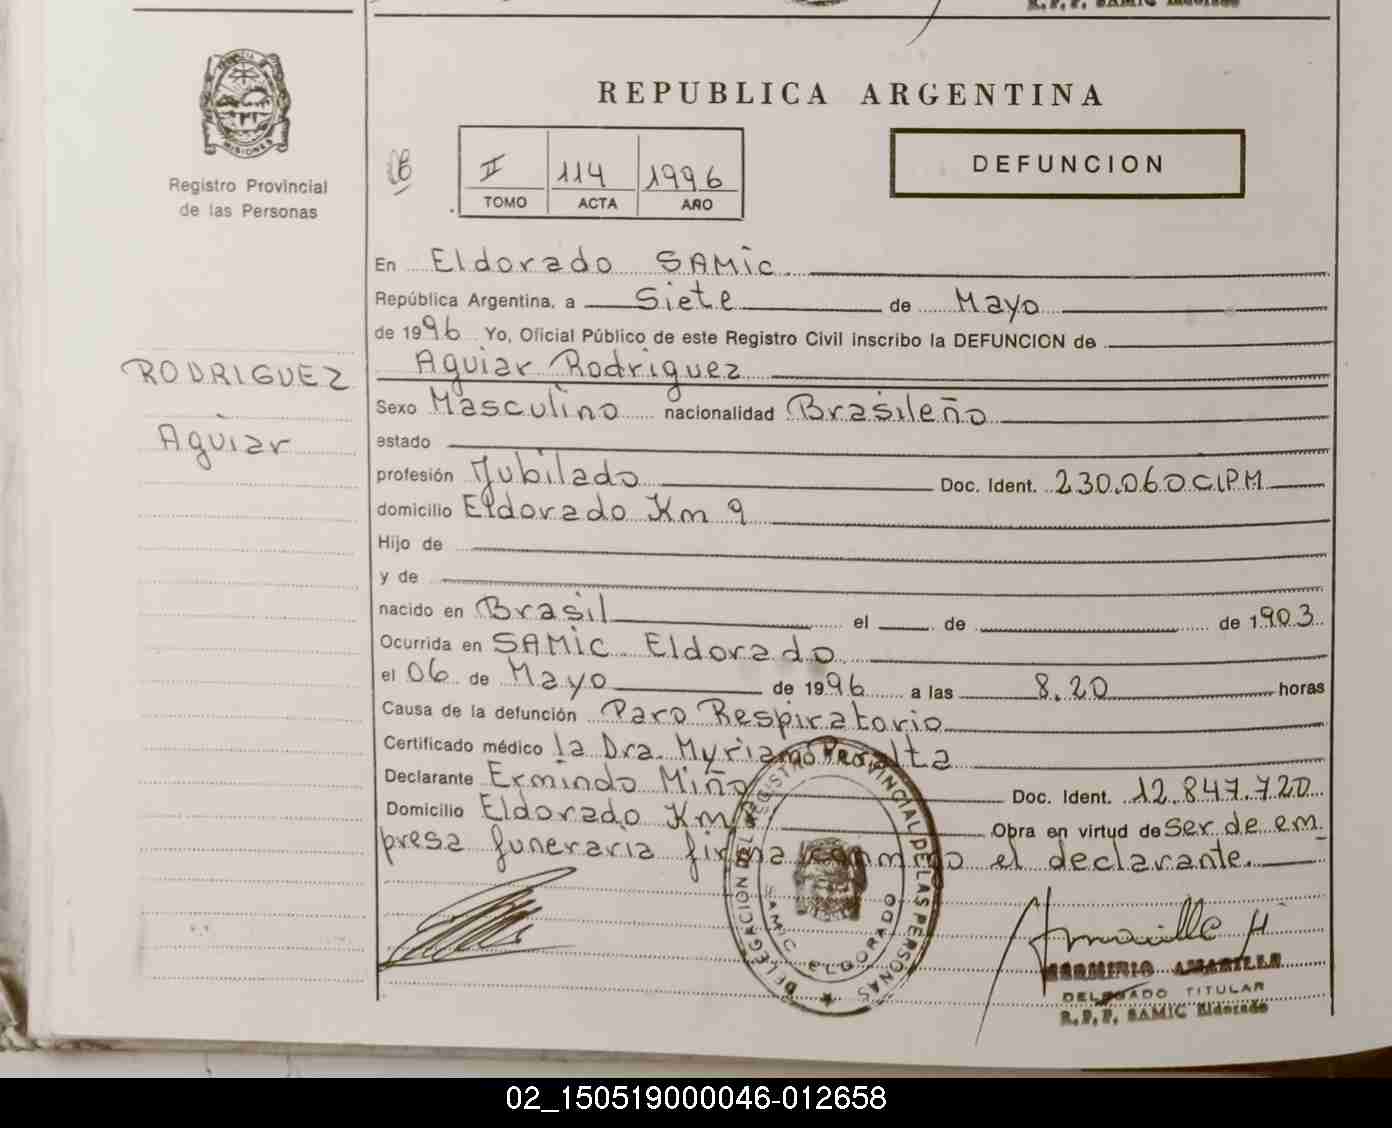 R.P.P. SAMIC Eldorado
MISIONES
Registro Provincial
de las Personas
REPUBLICA ARGENTINA
II 114 1996
TOMO ACTA AÑO
DEFUNCION
En Eldorado SAMic
República Argentina, a Siete de Mayo
de 1996 Yo, Oficial Público de este Registro Civil inscribo la DEFUNCION de
Aguiar Rodriguez
RODRIGUEZ
Aguiar
Sexo Masculino nacionalidad Brasileño
estado
profesión Jubilado Doc. Ident. 230.060 C.I.P.M
domicilio Eldorado Km 9
Hijo de
y de
nacido en Brasil el de de 1903
Ocurrida en SAMIC Eldorado
el 06 de Mayo de 1996 a las 8.20 horas
Causa de la defunción Paro Respiratorio
Certificado médico la Dra. Myriam Peralta
Declarante Ermindo Miño Doc. Ident. 12.847.720
Domicilio Eldorado Km Obra en virtud de Ser de em
presa funeraria firma conmigo el declarante.
DELEGACION DEL REGISTRO PROVINCIAL DE LAS PERSONAS
SAMIC ELDORADO
HERMINIO AMARILLA
DELEGADO TITULAR
R.P.P. SAMIC Eldorado
02_150519000046-012658